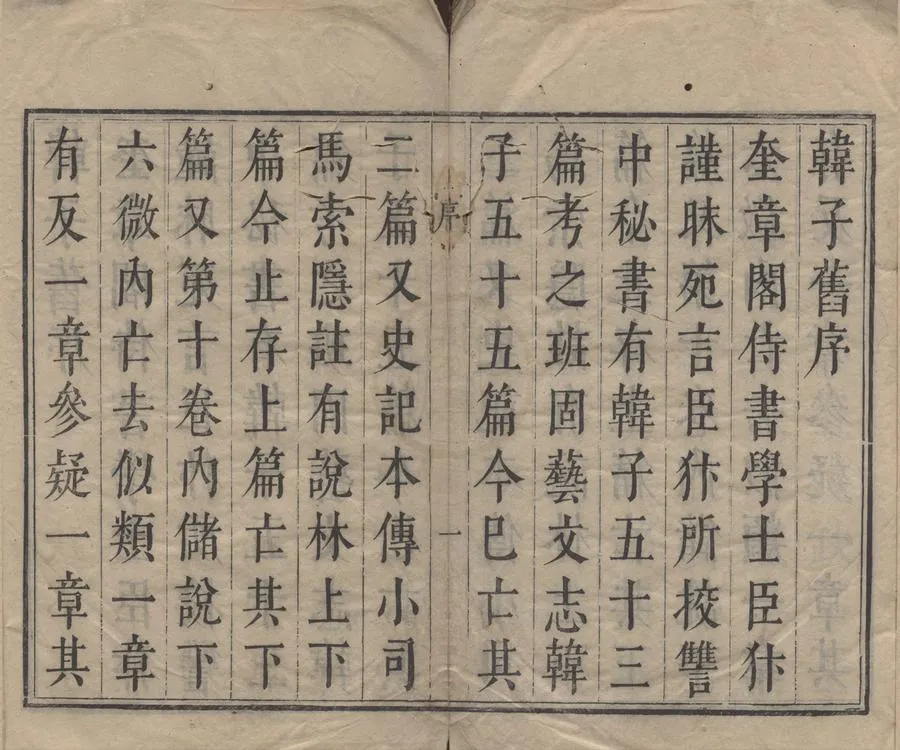 韓子舊序
奎章閣侍書學士臣㺵
謹昧死言臣㺵所挍讐
中秘書有韓子五十三
篇考之班固藝文志韓
子五十五篇今已亡其
序 一
二篇又史記本傳小司
馬索隱註有說林上下
篇今止存上篇亡其下
篇又第十卷內儲說下
六微內亡去似類一章
有反一章參疑一章其